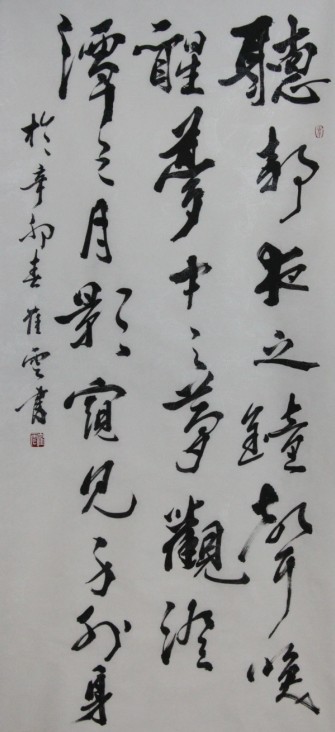 聽靜夜之鐘聲喚
醒夢中之夢觀澄
潭之月影窺見身外身
於辛卯春雲書